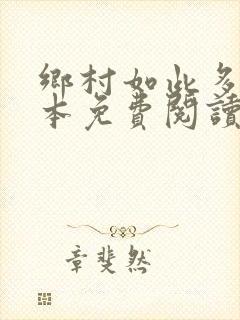 鄉村如此多
本免費閱讀
章斐然